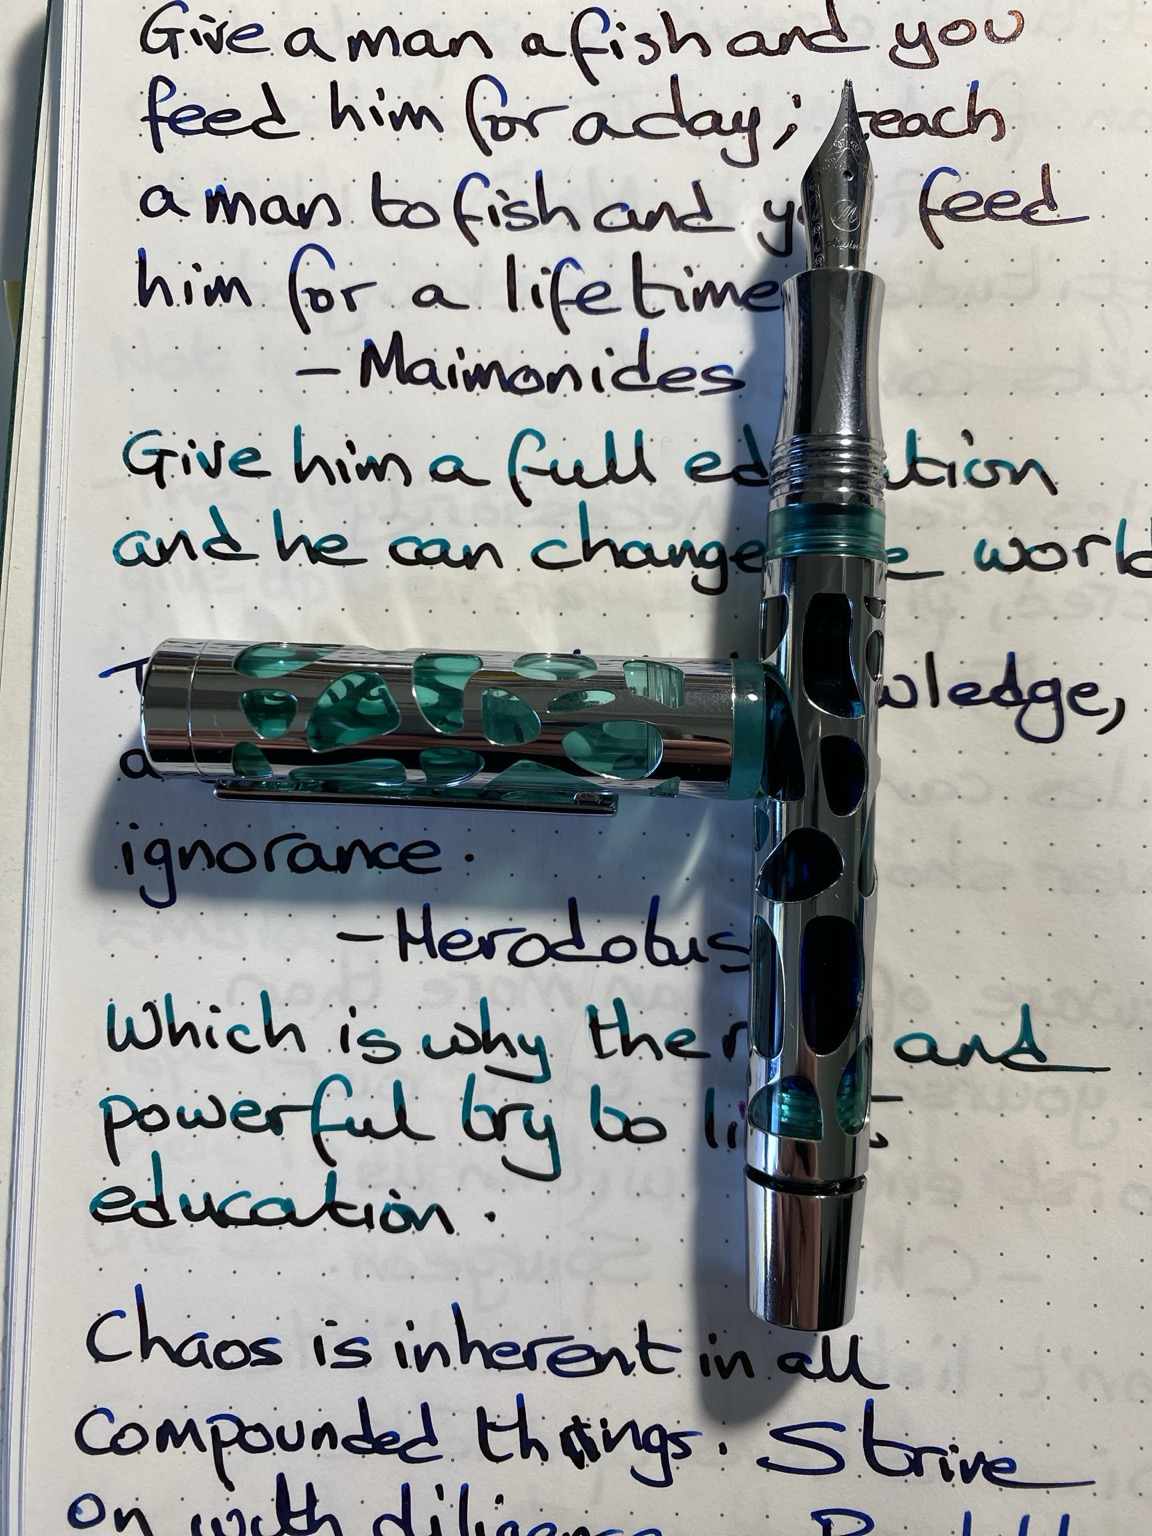 Give a man a fish and you
feed him for a day; teach
a man to fish and you feed
him for a lifetime
- Maimonides
Give him a full education
and he can change the world
ignorance.
- Herodotus
Which is why the and
powerful try to
education.
Chaos is inherent in all
compounded things. Strive
on with diligence